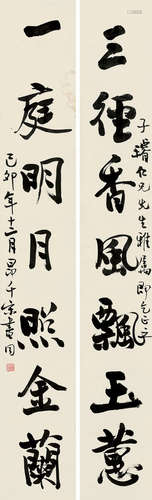 三徑香風飄玉蕙
子璿仁兄先生雅屬即乞正之
一庭明月照金蘭
己卯年十二月